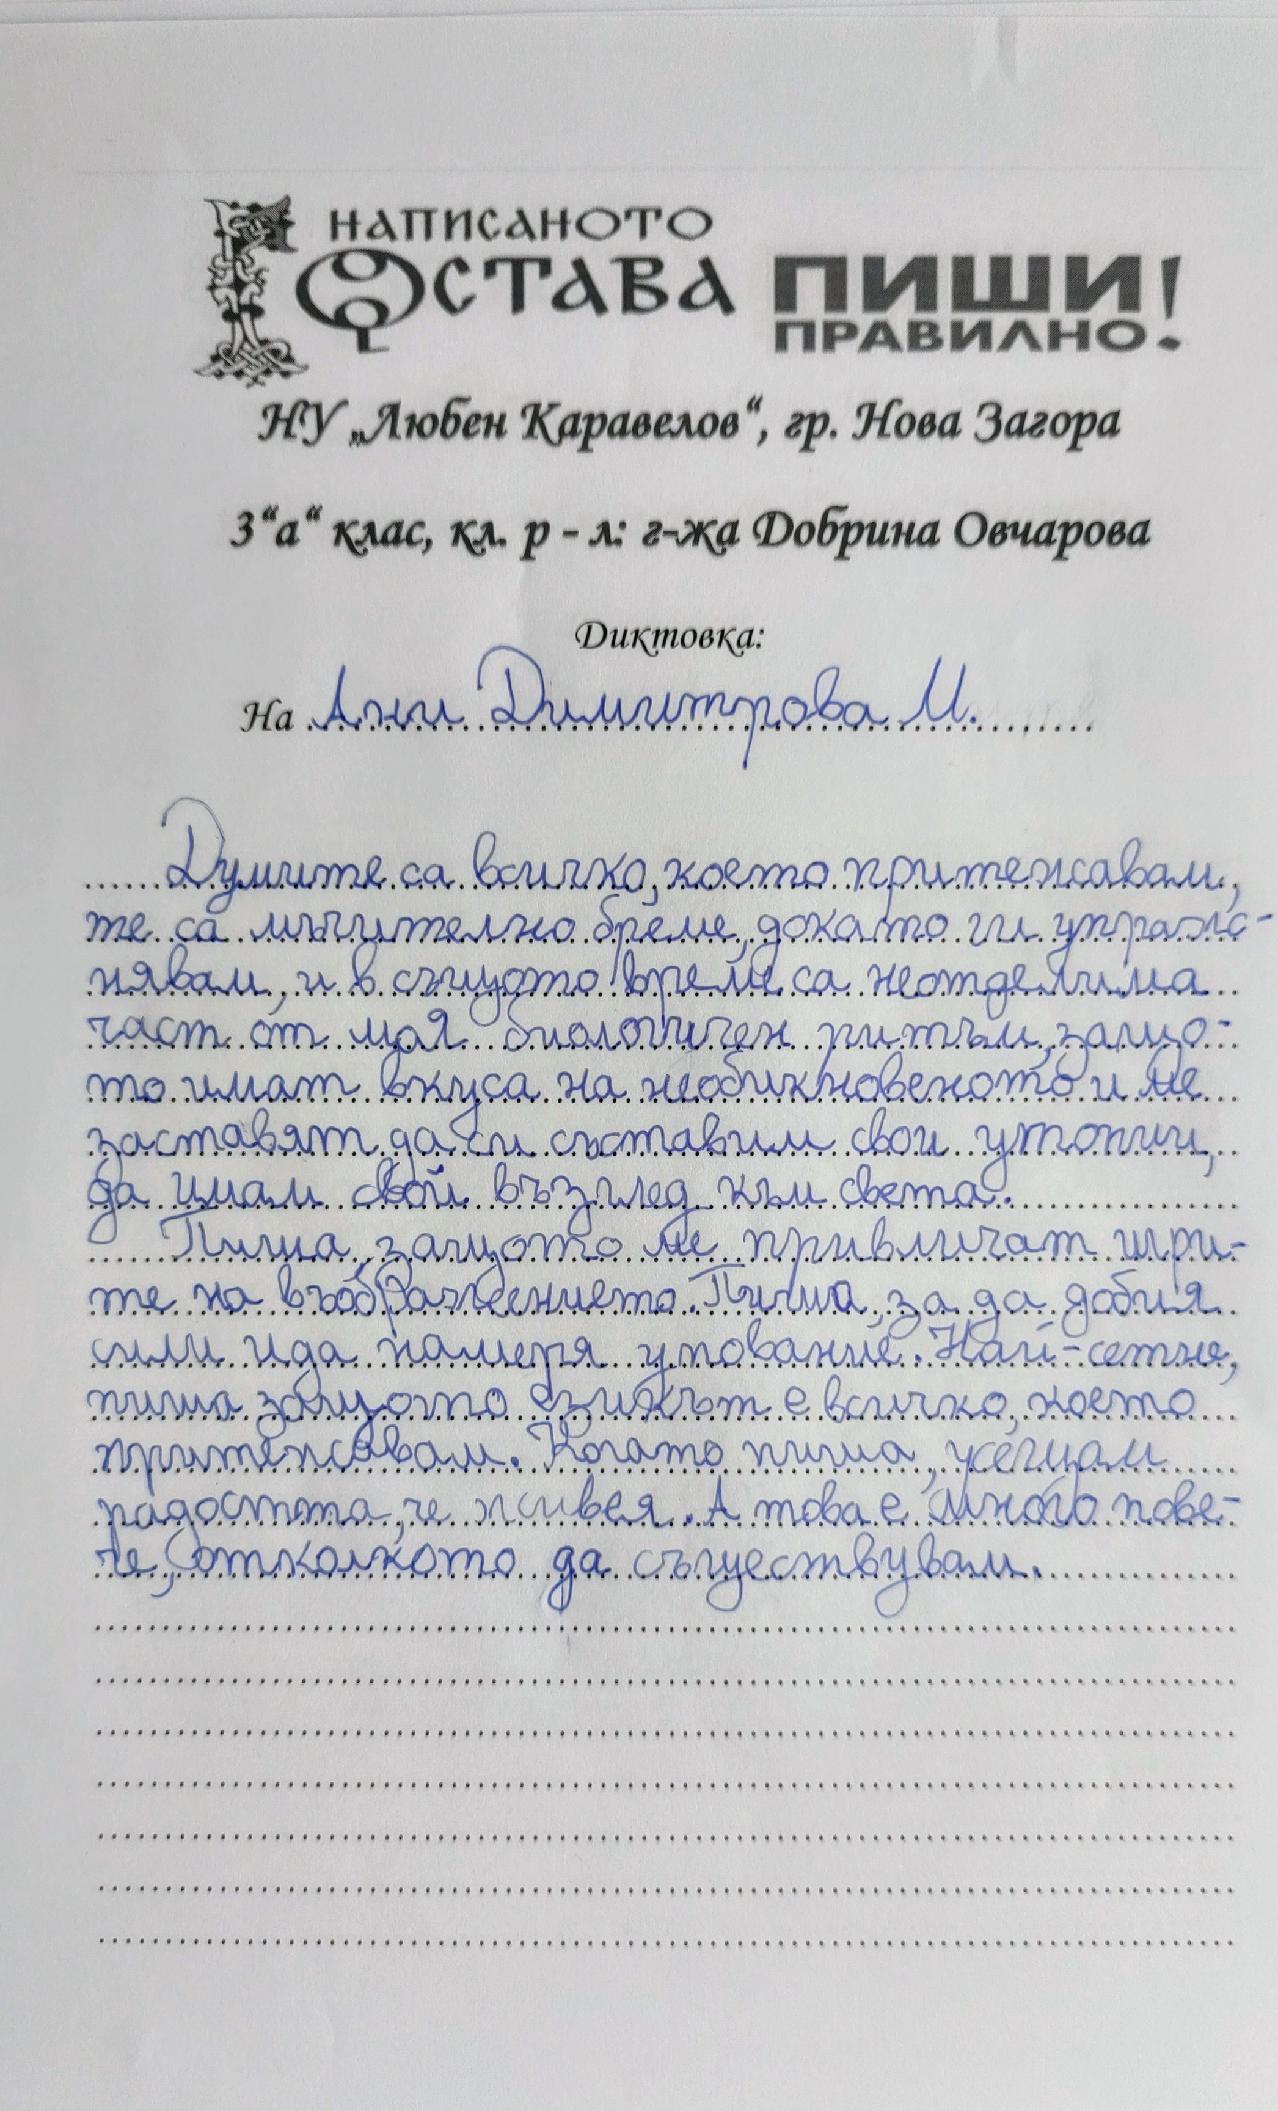 НАПИСАНОТО
ОСТАВА
ПИШИ
ПРАВИЛНО!
НУ „Любен Каравелов“, гр. Нова Загора
3“а“ клас, кл. р - л: г-жа Добрина Овчарова
Диктовка:
На Ани Димитрова М.
Думите са всичко, което притежавам,
те са мъчително бреме, докато ги упраж-
нявам, и в същото време са неотделима
част от моя биологичен ритъм, защо-
то имат вкуса на необикновеното и ме
заставят да си съставим свои утопии,
да имам свой възглед към света.
Пиша, защото ме привличат игри-
те на въображението. Пиша, за да добия
сили и да намеря упование. Най-сетне,
пиша защото езикът е всичко, което
притежавам. Когато пиша, усещам
радостта, че живея. А това е много пове-
че, отколкото да съществувам.